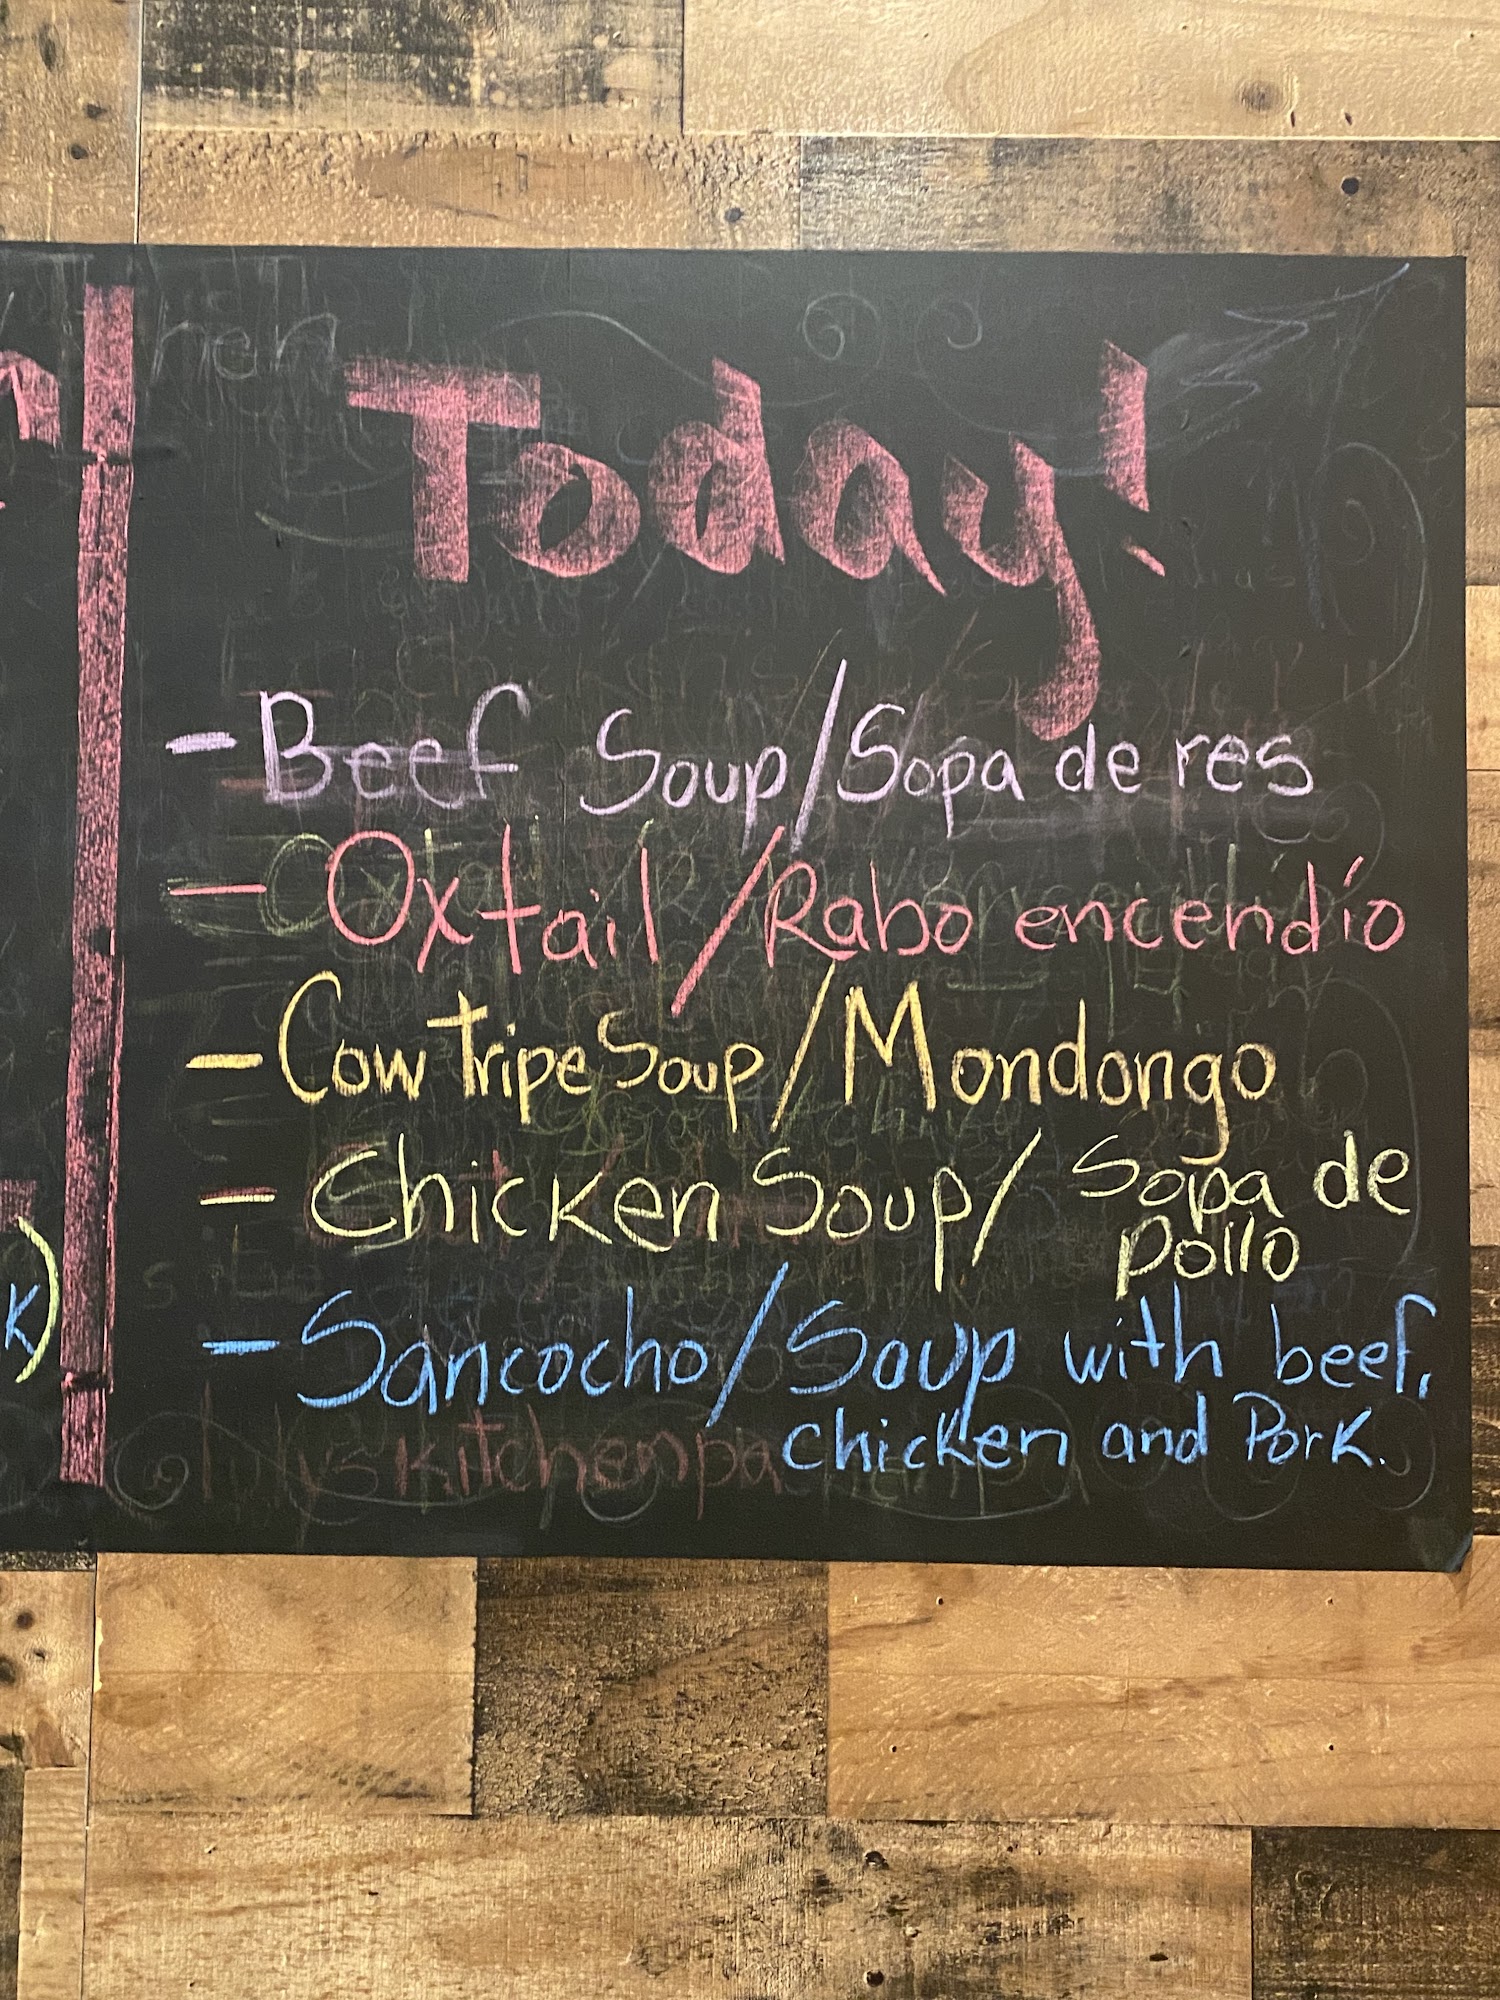 Today!
- Beef Soup/Sopa de res
- Oxtail/Rabo encendío
- Cow Tripe Soup/Mondongo
- Chicken Soup/ Sopa de
pollo
- Sancocho/Soup with beef,
chicken and Pork.
K)
kitchenpa